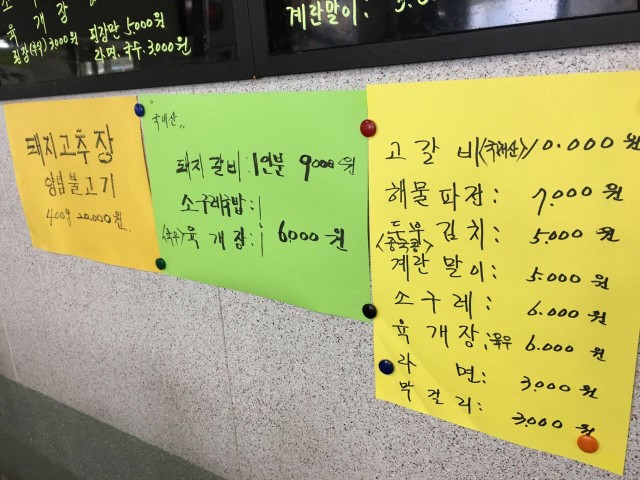 육개장
회장(국수) 3,000원 회장만 5.000원
라면.국수. 3,000원
계란말이:
돼지고추장
양념불고기
400g 20.000원..
국내산,,
돼지갈비: 1인분 9000원
소구레국밥:
육개장: 6.000원
고갈비<국내산>10.000원
해물파전: 7.000원
두부김치: 5.000원
<중국콩>
계란말이: 5.000원
소구레: 6.000원
육개장: 6.000원
라면: 3.000원
막걸리: 3.000원